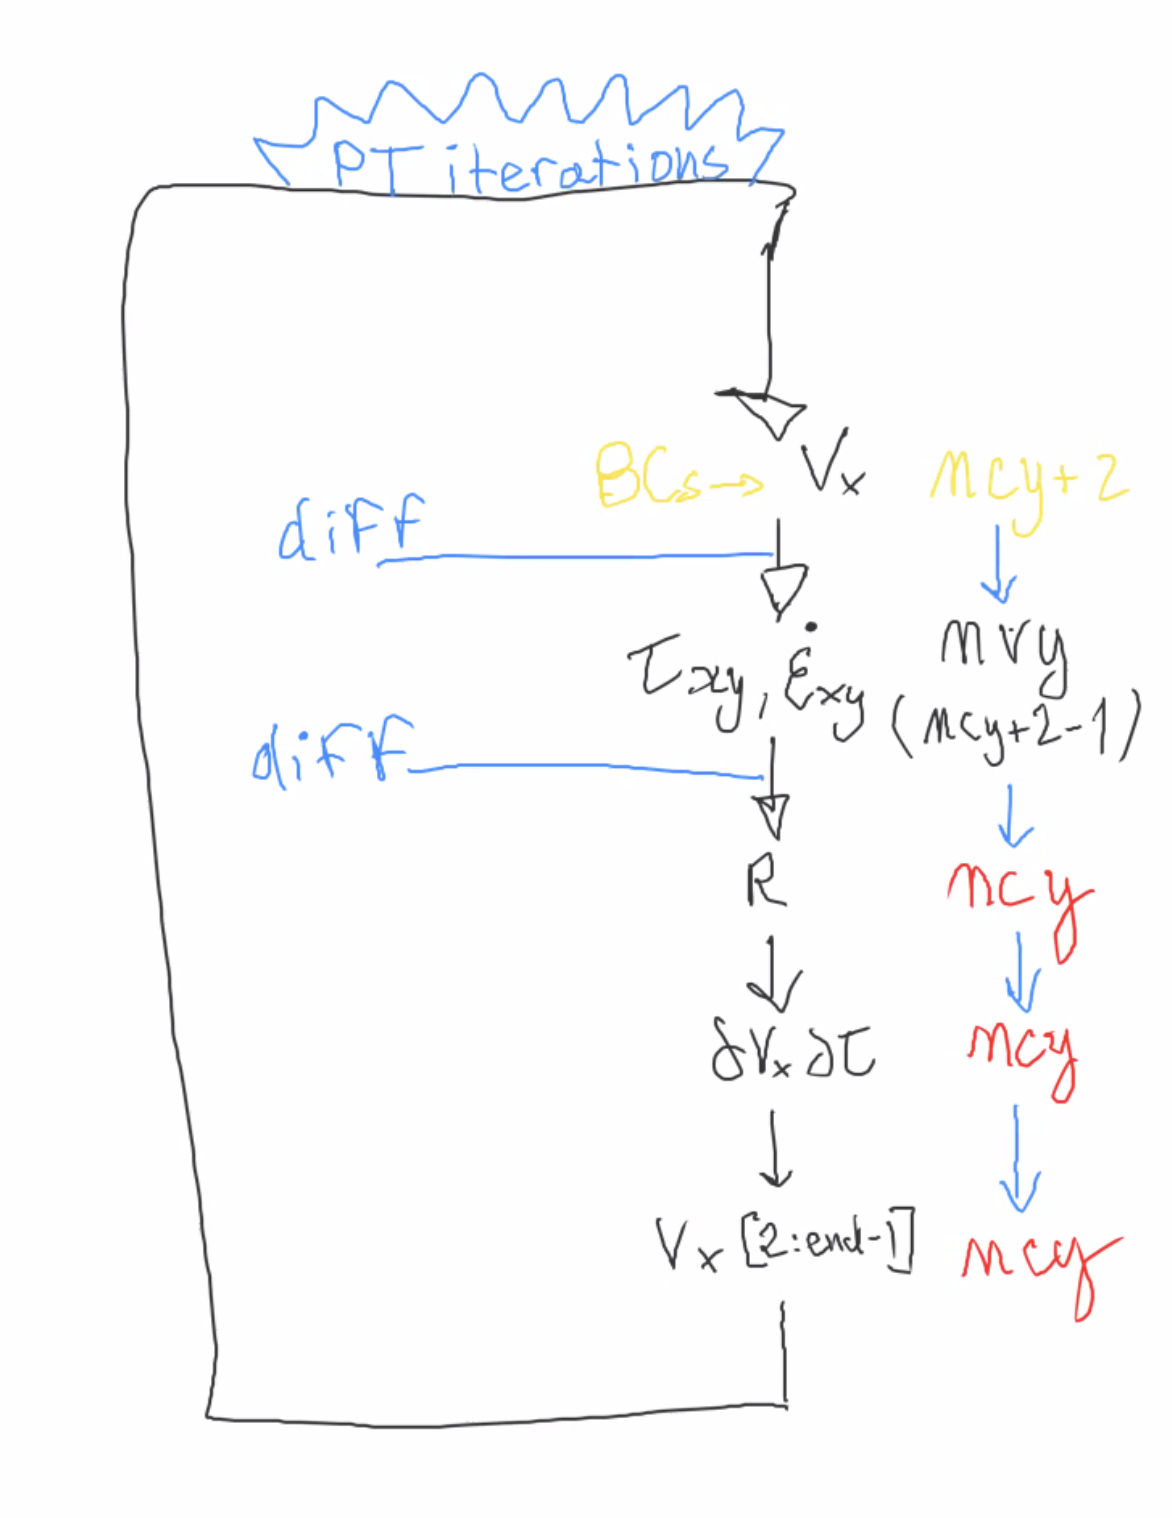 PT iterations
BCs→ Vx ncy+2
diff
τxy, ε̇xy nvy
(ncy+2-1)
diff
R ncy
δVx ∂τ ncy
Vx [2:end-1] ncy